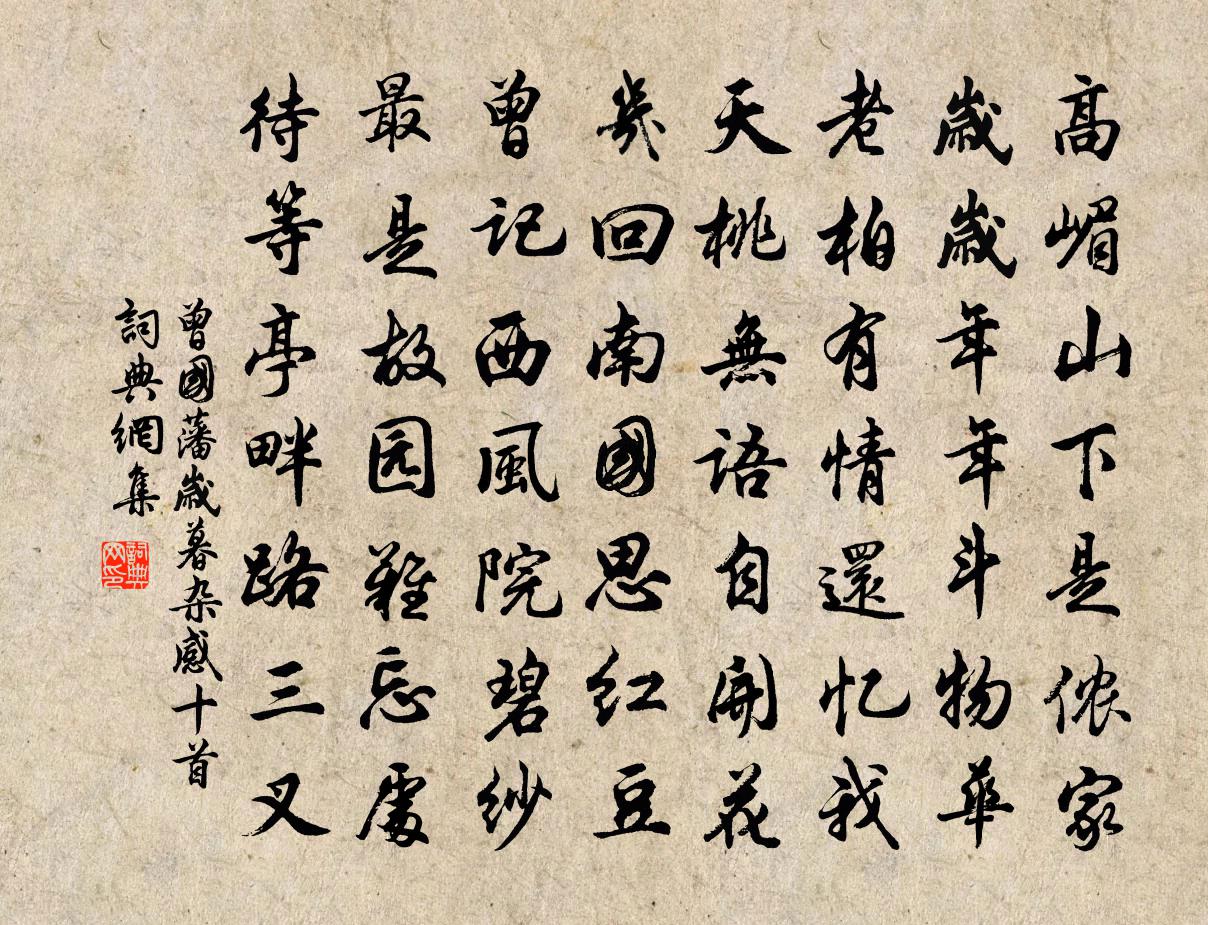 高嵋山下是侬家
歲歲年年斗物華
老柏有情還忆我
天桃無語自開花
幾回南國思红豆
曾记西風院碧纱
最是故园難忘處
待等亭畔路三叉
曾國藩歲暮杂感十首
詞典網集
詞典